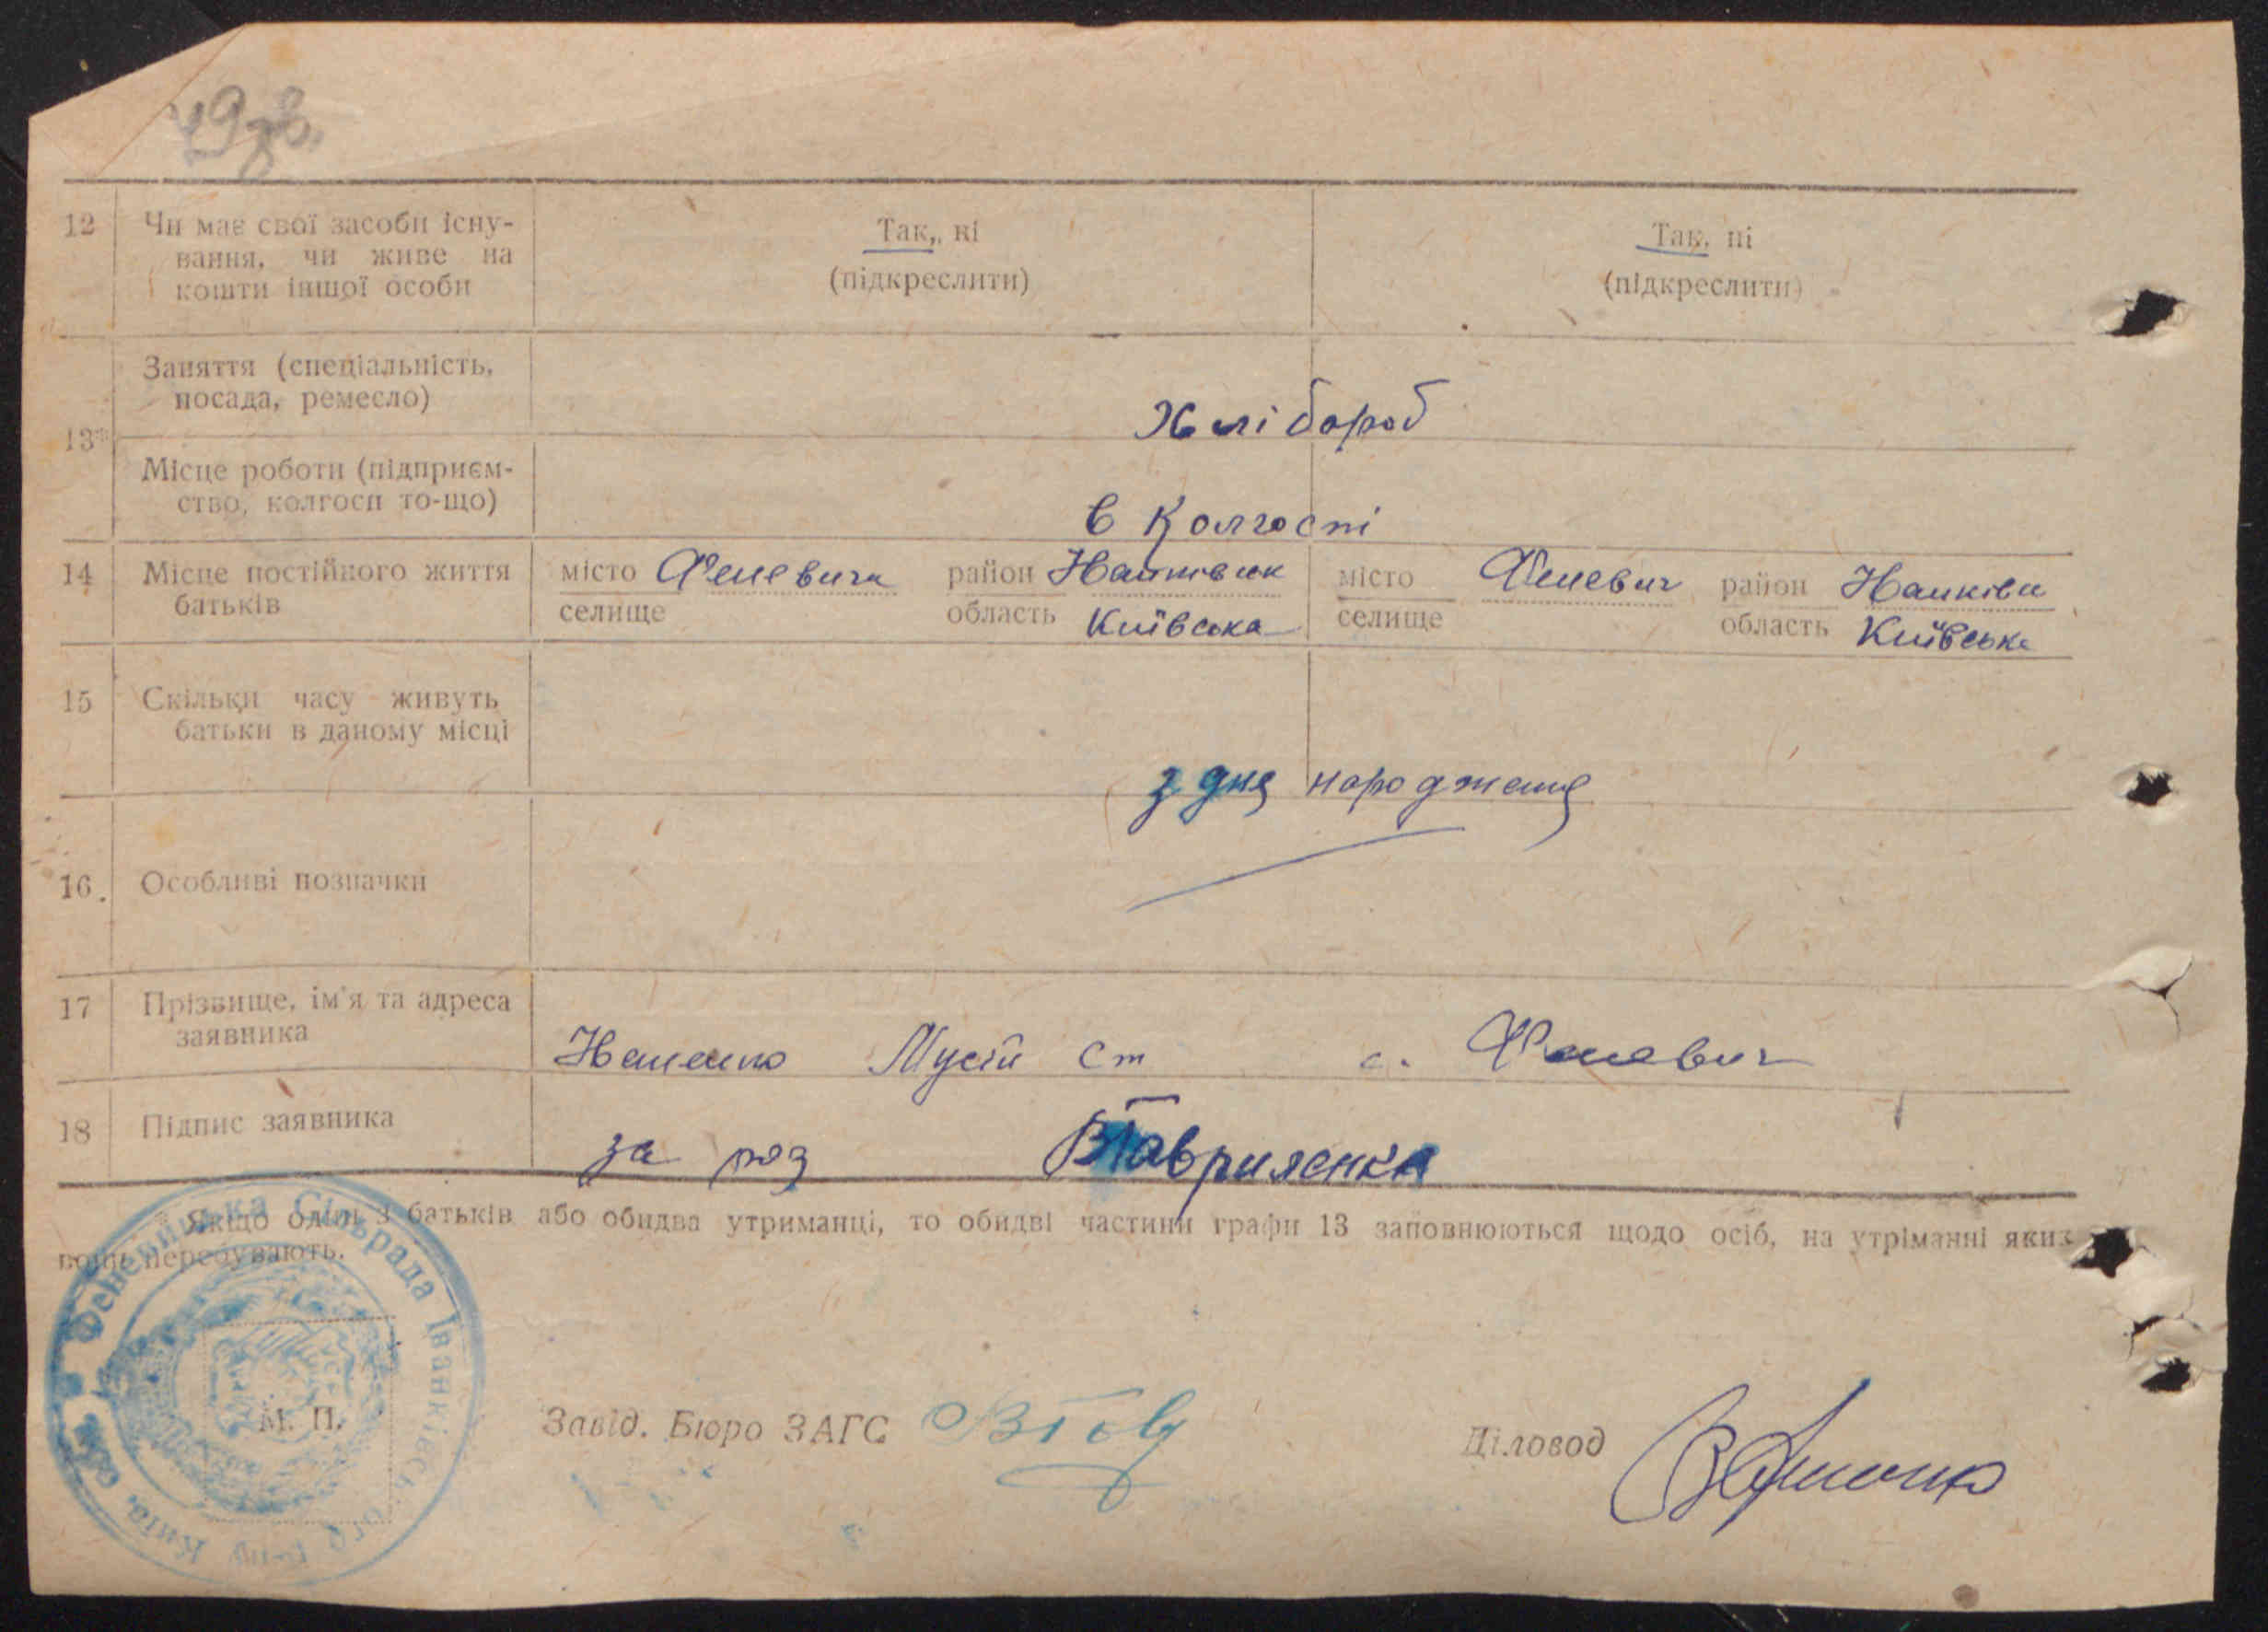 12 Чи має свої засоби існу-
вання, чи живе на
кошти іншої особи
Так, ні
(підкреслити)
Так, ні
(підкреслити)
13* Заняття (спеціальність,
посада, ремесло)
Хлібороб
Місце роботи (підприєм-
ство, колгосп то-що)
в Колгоспі
14 Місце постійного життя
батьків
місто Феневичи район
селище область Київська
місто Феневич район
селище область Київська
15 Скільки часу живуть
батьки в даному місці
з дня народження
16. Особливі позначки
17 Прізвище, ім'я та адреса
заявника
Мусій Ст с. Феневич
18 Підпис заявника
за роз ВГавриленка
* Якщо один з батьків або обидва утриманці, то обидві частини графи 13 заповнюються щодо осіб, на утріманні яких
вони перебувають.
Феневицька Сільрада Іванківського р-ну Київ. обл.
М. П.
Завід. Бюро ЗАГС
Діловод